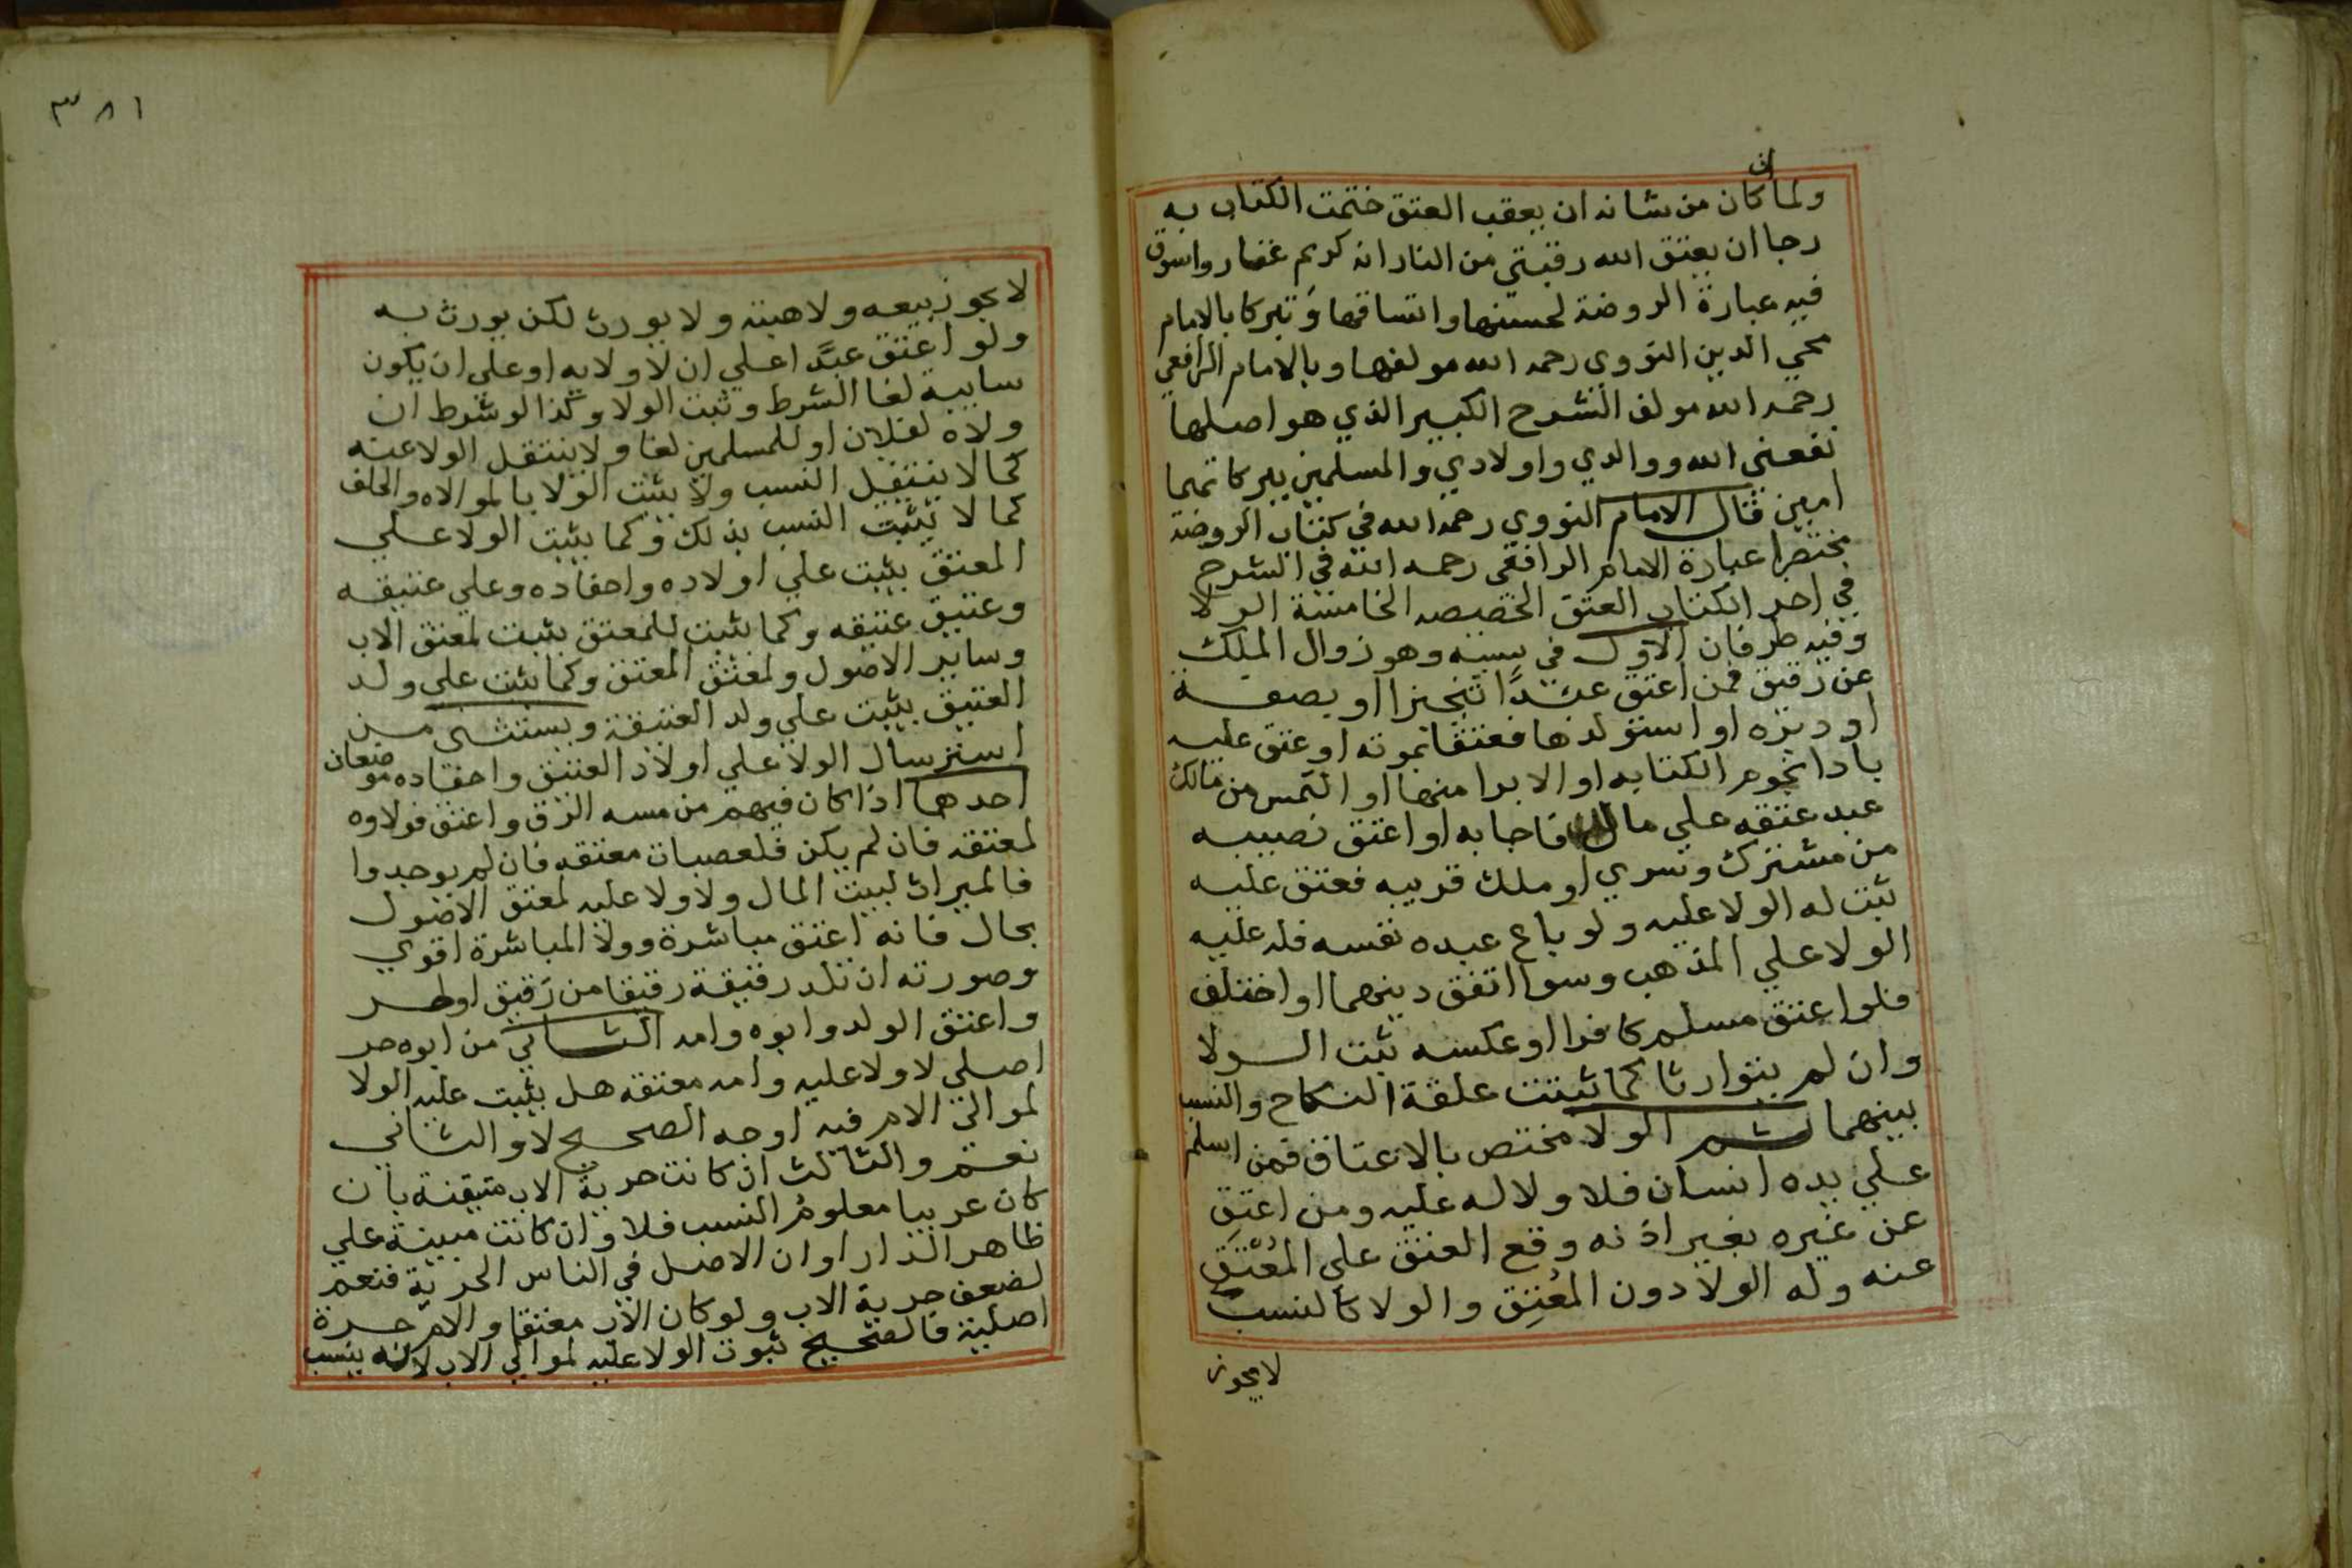 ان
ولما كان من شانه ان يعقب العتق ختمت الكتاب به
رجا ان يعتق الله رقبتي من النار انه كريم غفار واسوق
فيه عبارة الروضة لحسنها واتساقها وتبركا بالامام
محي الدين النووي رحمه الله مولفها وبالامام الرافعي
رحمه الله مولف الشرح الكبير الذي هو اصلها
نفعني الله ووالدي واولادي والمسلمين ببركاتهما
امين قال الامام النووي رحمه الله في كتاب الروضة
مختصرا عبارة الامام الرافعي رحمه الله في الشرح
في اخر الكتاب العتق الخصيصه الخامسة الولا
وفيه طرفان الاول في سببه وهو زوال الملك
عن رقيق فمن اعتق عبدًا تنجيزا او بصفة
او دبره او استولدها فعتقا بموته او عتق عليه
بادا نجوم الكتابه او الابرا منها او التمس من مالك
عبد عتقه علي مال فاجابه او اعتق نصيبه
من مشترك وسري او ملك قريبه فعتق عليه
ثبت له الولا عليه ولو باع عبده نفسه فله عليه
الولا علي المذهب وسوا اتفق دينهما او اختلف
فلو اعتق مسلم كافرا او عكسه ثبت الولا
وان لم يتوارثا كما تثبت علقة النكاح والنسب
بينهما ثم الولا مختص بالاعتاق فمن اسلم
علي يده انسان فلا ولا له عليه ومن اعتق
عن غيره بغير اذنه وقع العتق علي المُعْتِق
عنه وله الولا دون المُعتِق والولا كالنسب
لا يجوز
٣٨١
لا يجوز بيعه ولا هبته ولا يورث لكن يورث به
ولو اعتق عبدًا علي ان لا ولا به او علي ان يكون
سايبة لغا الشرط وثبت الولا وكذا لو شرط ان
ولاه لفلان او للمسلمين لغا ولا ينتقل الولا عنه
كما لا ينتقل النسب ولا يثبت الولا بالموالاه والحلف
كما لا يثبت النسب بذلك وكما يثبت الولا علي
المعتق يثبت علي اولاده واحفاده وعلي عتيقه
وعتيق عتيقه وكما يثبت للمعتق يثبت لمعتق الاب
وساير الاصول ولمعتق المعتق وكما يثبت علي ولد
العتيق يثبت علي ولد العتيقة ويستثني من
استرسال الولا علي اولاد العتيق واحفاده موضعان
احدهما اذا كان فيهم من مسه الرق واعتق فولاوه
لمعتقه فان لم يكن فلعصبات معتقه فان لم يوجدوا
فالميراث لبيت المال ولا ولا عليه لمعتق الاصول
بحال فانه اعتق مباشرة وولا المباشرة اقوي
وصورته ان تلد رقيقة رقيقا من رقيق او حر
واعتق الولد وابوه وامه الثاني من ابوه حر
اصلي لا ولا عليه وامه معتقه هل يثبت عليه الولا
لموالي الام فيه اوجه الصحيح لا والثاني
نعم والثالث ان كانت حرية الاب متيقنة بان
كان عربيا معلوم النسب فلا وان كانت مبينة علي
ظاهر الدار او ان الاصل في الناس الحرية فنعم
لضعف حرية الاب ولو كان الاب معتقا والام حرة
اصلية فالصحيح ثبوت الولا عليه لموالي الاب لانه ينسب